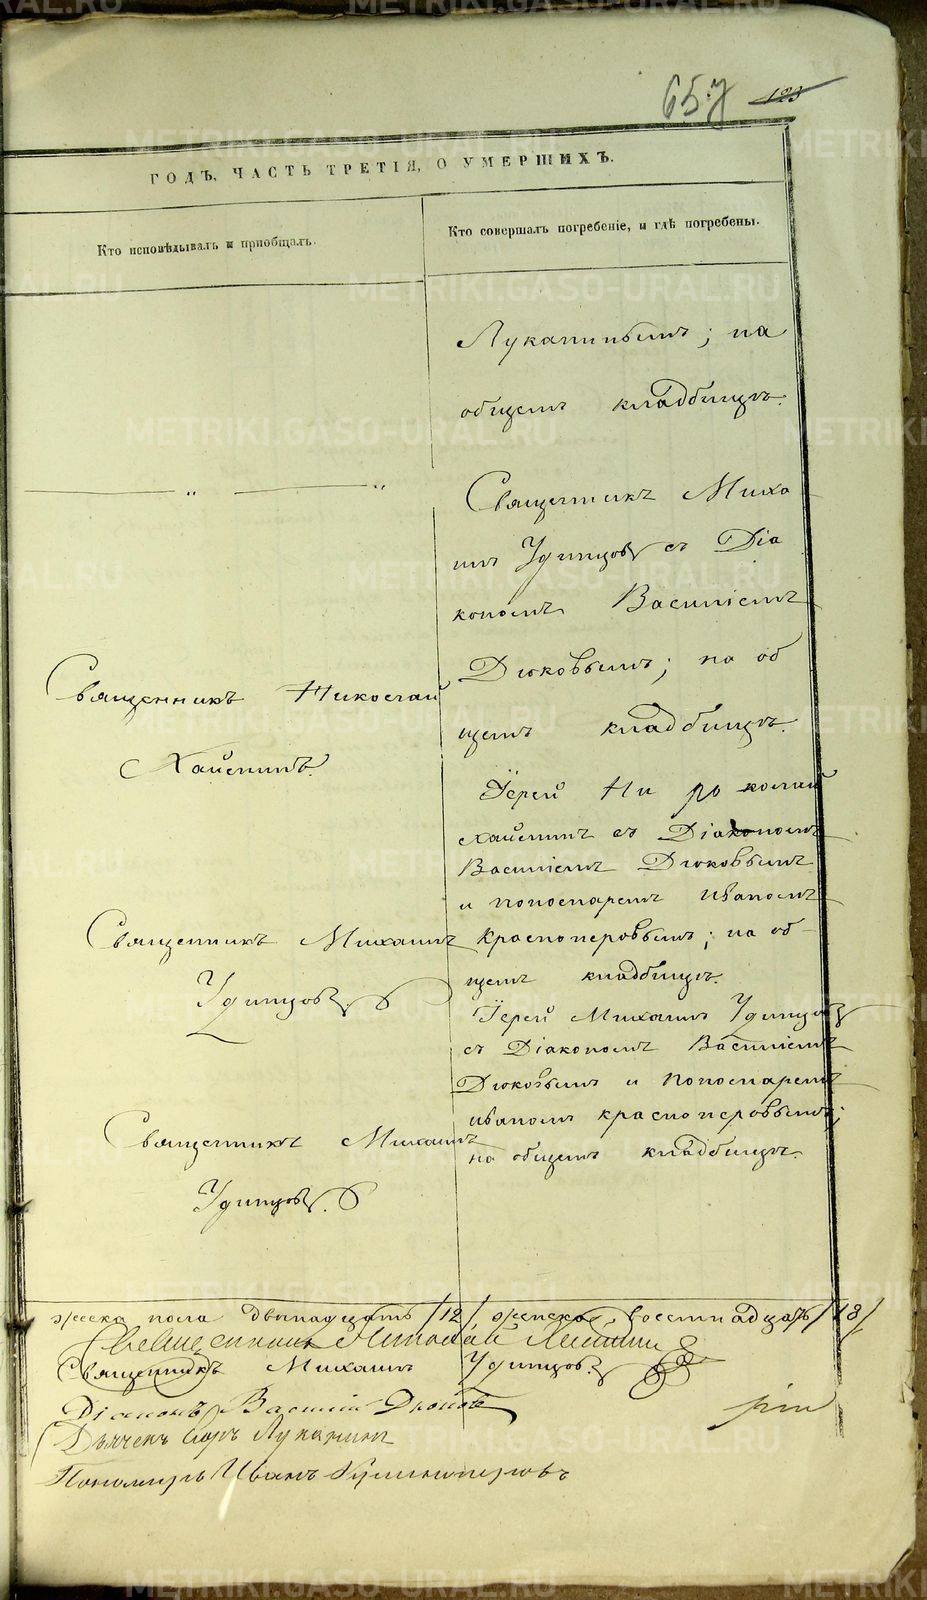 123
ГОДЪ, ЧАСТЬ ТРЕТІЯ, О УМЕРШИХЪ.
Кто исповѣдывалъ и пріобщалъ.
Кто совершалъ погребеніе, и гдѣ погребены.
Лукапинымъ; на
общемъ кладбищѣ.
Священникъ Миха
илъ Удинцовъ съ Діа
кономъ Василіемъ
Дюковымъ; на об
щемъ кладбищѣ.
Священникъ Николай
Іерей Ни колай
съ Діакономъ
Василіемъ Дюковымъ
и пономаремъ Иваномъ
Красноперовымъ; на об-
щемъ кладбищѣ.
Священникъ Михаилъ
Удинцовъ.
Іерей Михаилъ Удинцовъ
съ Діакономъ Василіемъ
Дюковымъ и Пономаремъ
Иваномъ Красноперовымъ;
на общемъ кладбищѣ.
Священникъ Михаилъ
Удинцовъ.
пола двѣнадцать /12/, женска, восемнадцать /18/
Священникъ Николай
Священникъ Михаилъ Удинцовъ.
Діаконъ Василій Дюковъ
Дьячекъ
Пономарь Иванъ Красноперовъ
METRIKI.GASO-URAL.RU